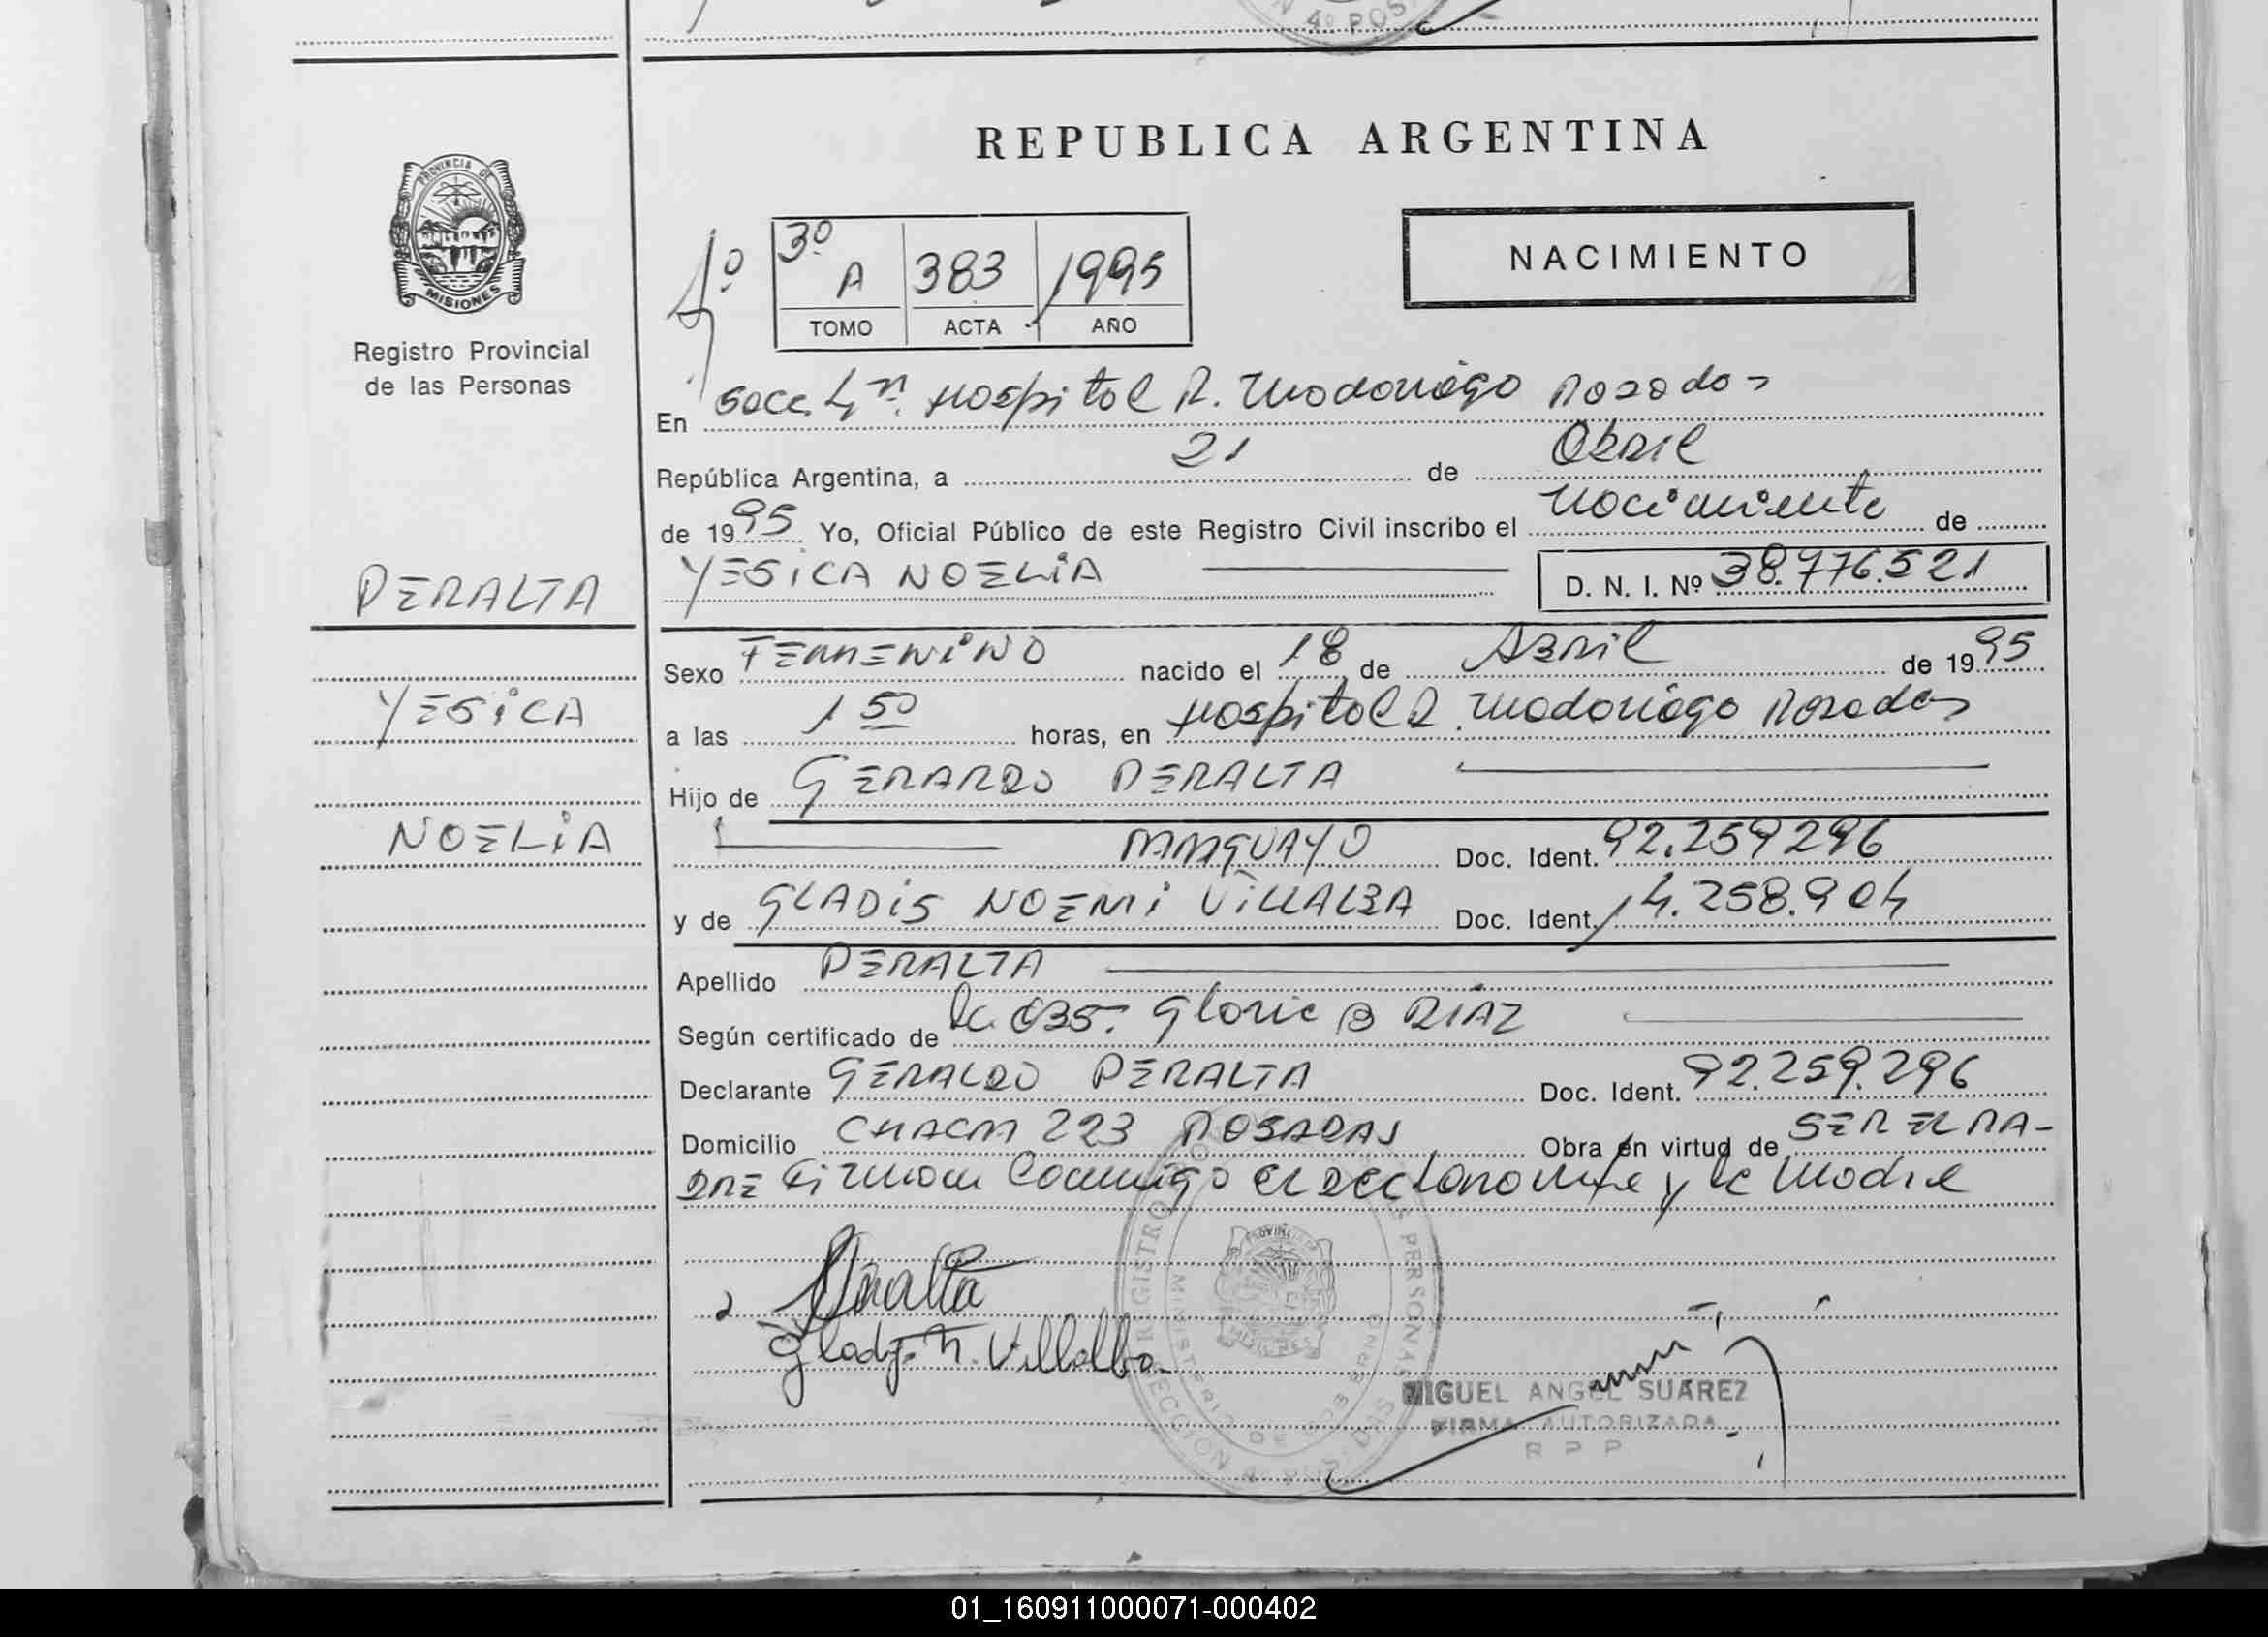 REPUBLICA ARGENTINA
PROVINCIA DE
MISIONES
Registro Provincial
de las Personas
NACIMIENTO
4º
3º A 383 1995
TOMO ACTA AÑO
En Secc. 4ta. Hospital R. Madariaga Posadas
República Argentina, a 21 de Abril
de 1995 Yo, Oficial Público de este Registro Civil inscribo el nacimiento de
YESICA NOELIA D. N. I. Nº 38.776.521
PERALTA
YESICA
NOELIA
Sexo FEMENINO nacido el 18 de Abril de 1995
a las 1 50 horas, en Hospital R. Madariaga Posadas
Hijo de GERARDO PERALTA
PARAGUAYO Doc. Ident. 92.259296
y de GLADIS NOEMI VILLALBA Doc. Ident. 14.258.904
Apellido PERALTA
Según certificado de la OBS. Gloria B DIAZ
Declarante GERALDO PERALTA Doc. Ident. 92.259.296
Domicilio CHACRA 223 POSADAS Obra en virtud de SER EL PA-
DRE Firman Conmigo el Declarante y la Madre
Peralta
Gladys N. Villalba
MIGUEL ANGEL SUAREZ
FIRMA AUTORIZADA
R P P
01_160911000071-000402